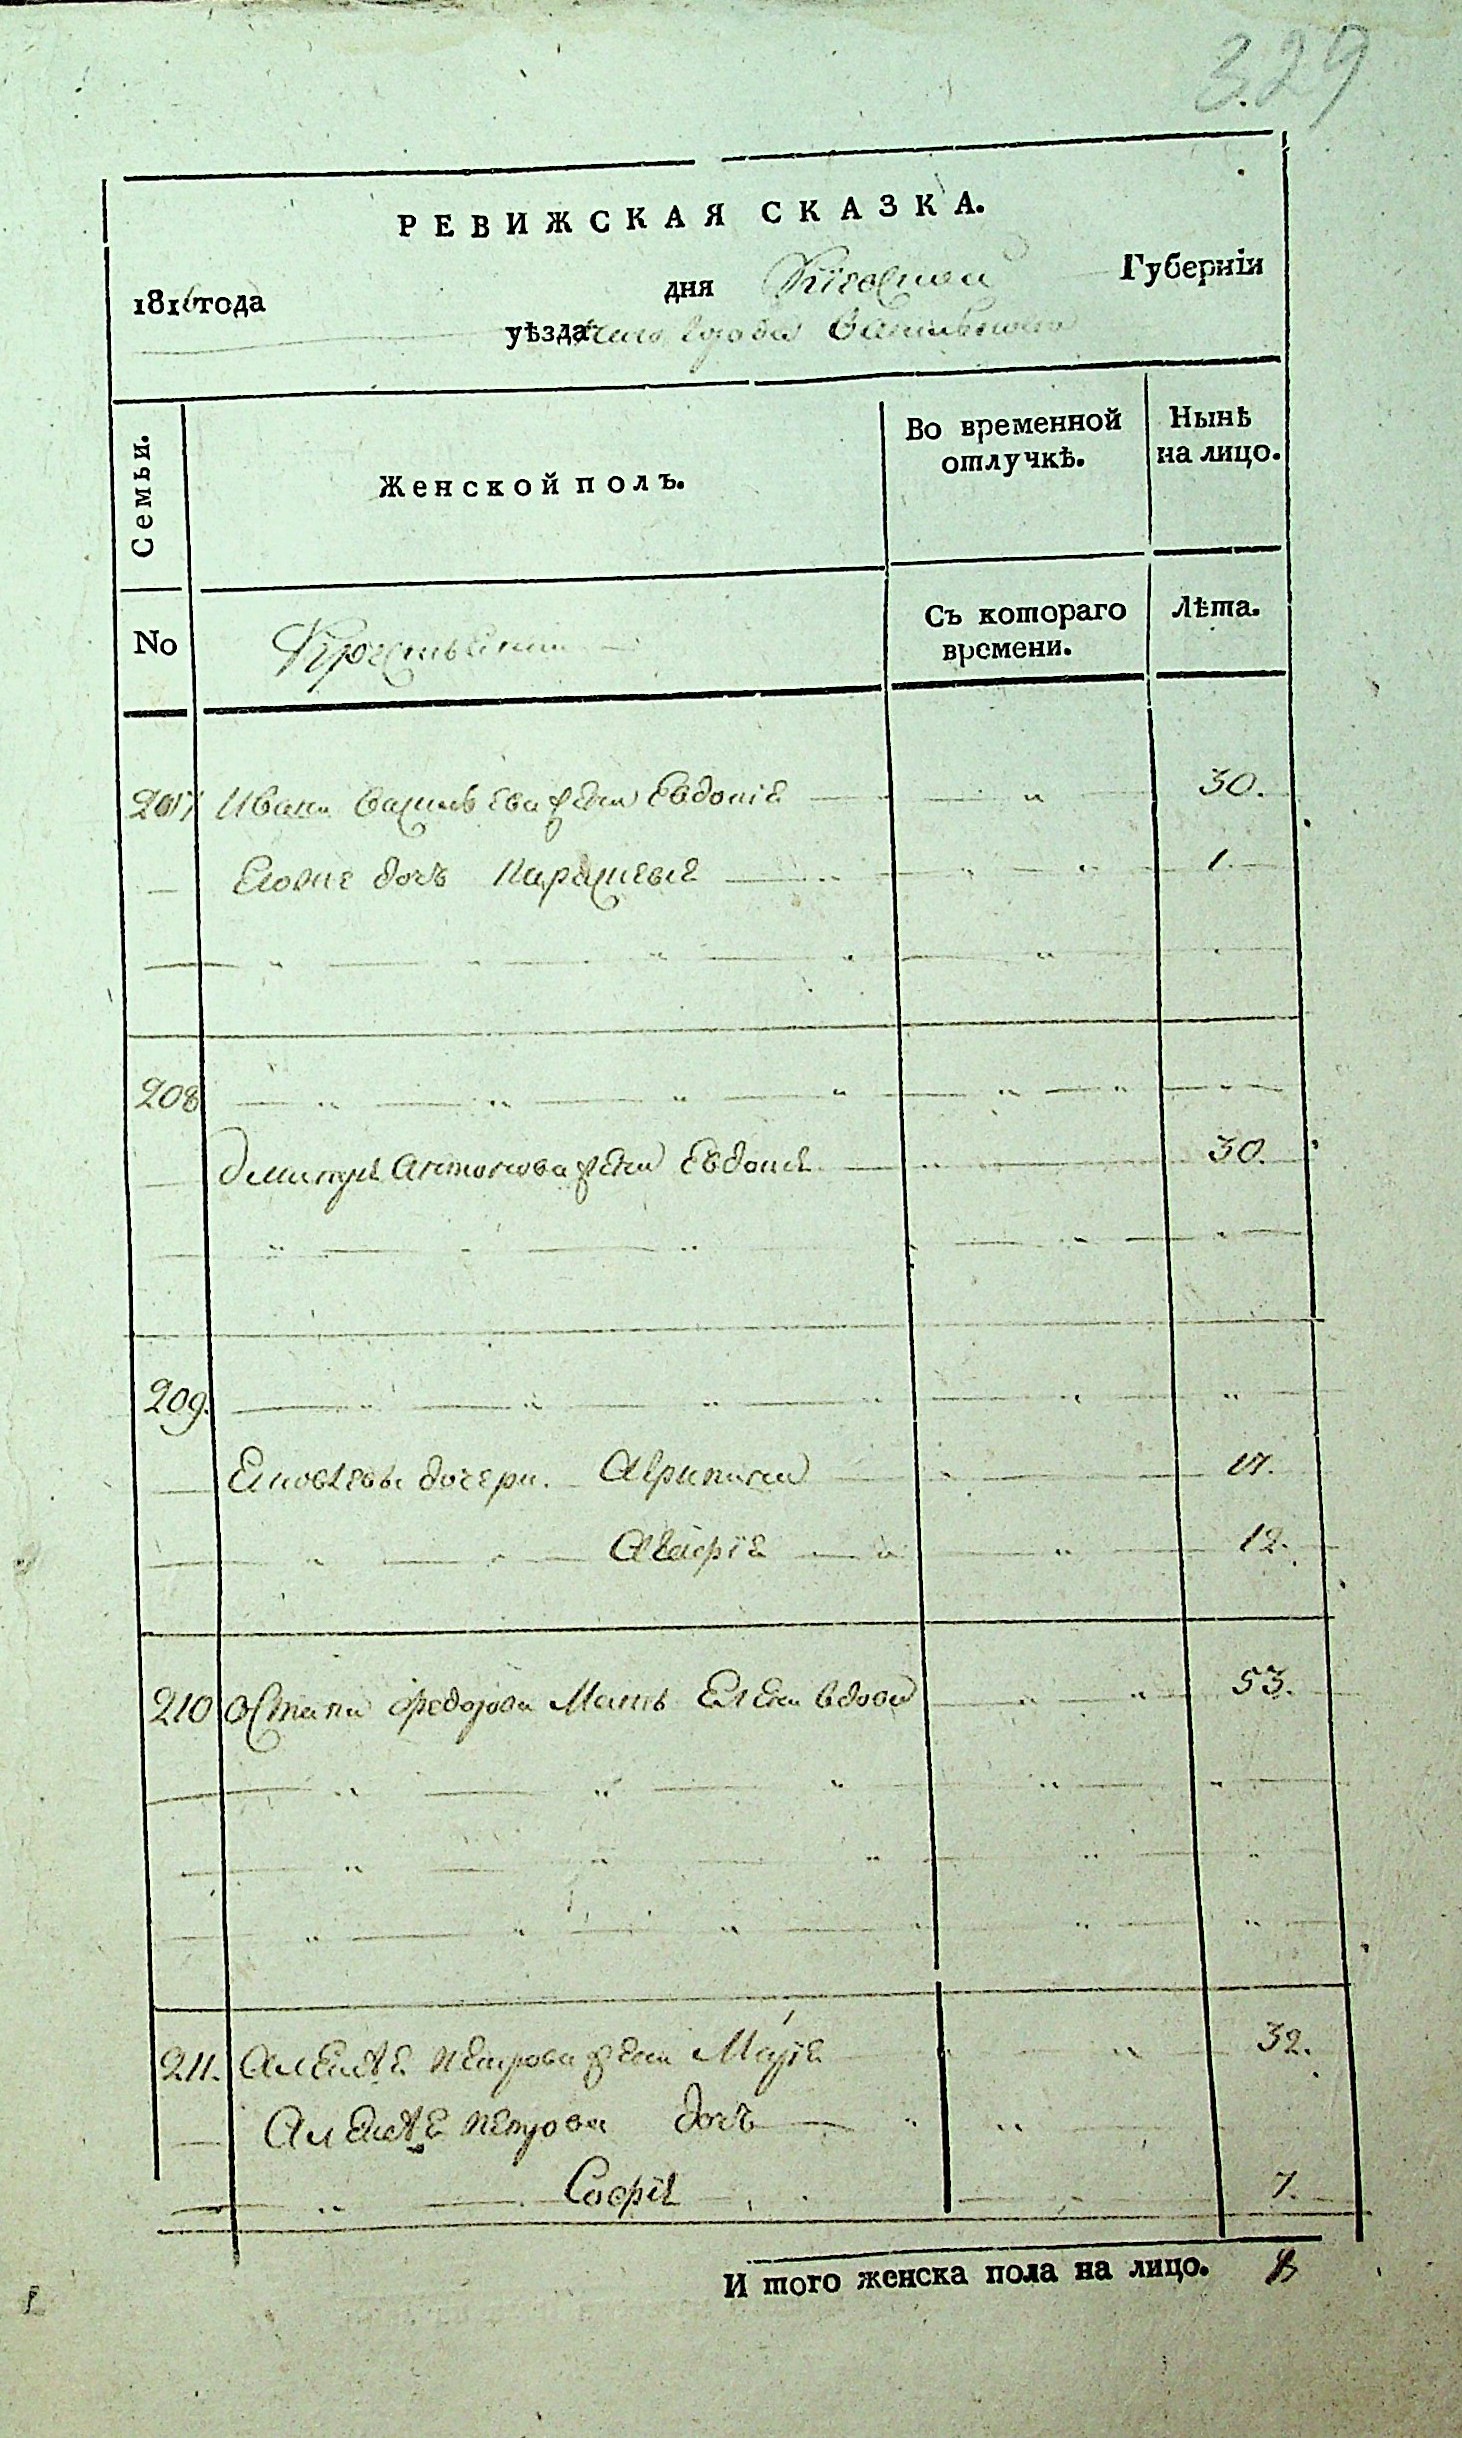 329
РЕВИЖСКАЯ СКАЗКА.
1816 года дня Кіевской Губерніи
уѣзда города Василькова
Семьи.
Женской полъ.
Во временной отлучкѣ.
Нынѣ на лицо.
No
Крестьяне
Съ котораго времени.
Лѣта.
207 Ивана Васильева жена Евдокія 30.
Его же дочь Параскевія 1.
208
Дмитрія Антонова жена Евдокія 30.
209.
дочери. Агрипина 17.
12.
210 Остапа Федорова Мать Елена вдова 53.
211. Алексѣя Петрова жена Марія 32.
Алексѣя Петрова дочь
Софія 7.
И того женска пола на лицо. 8